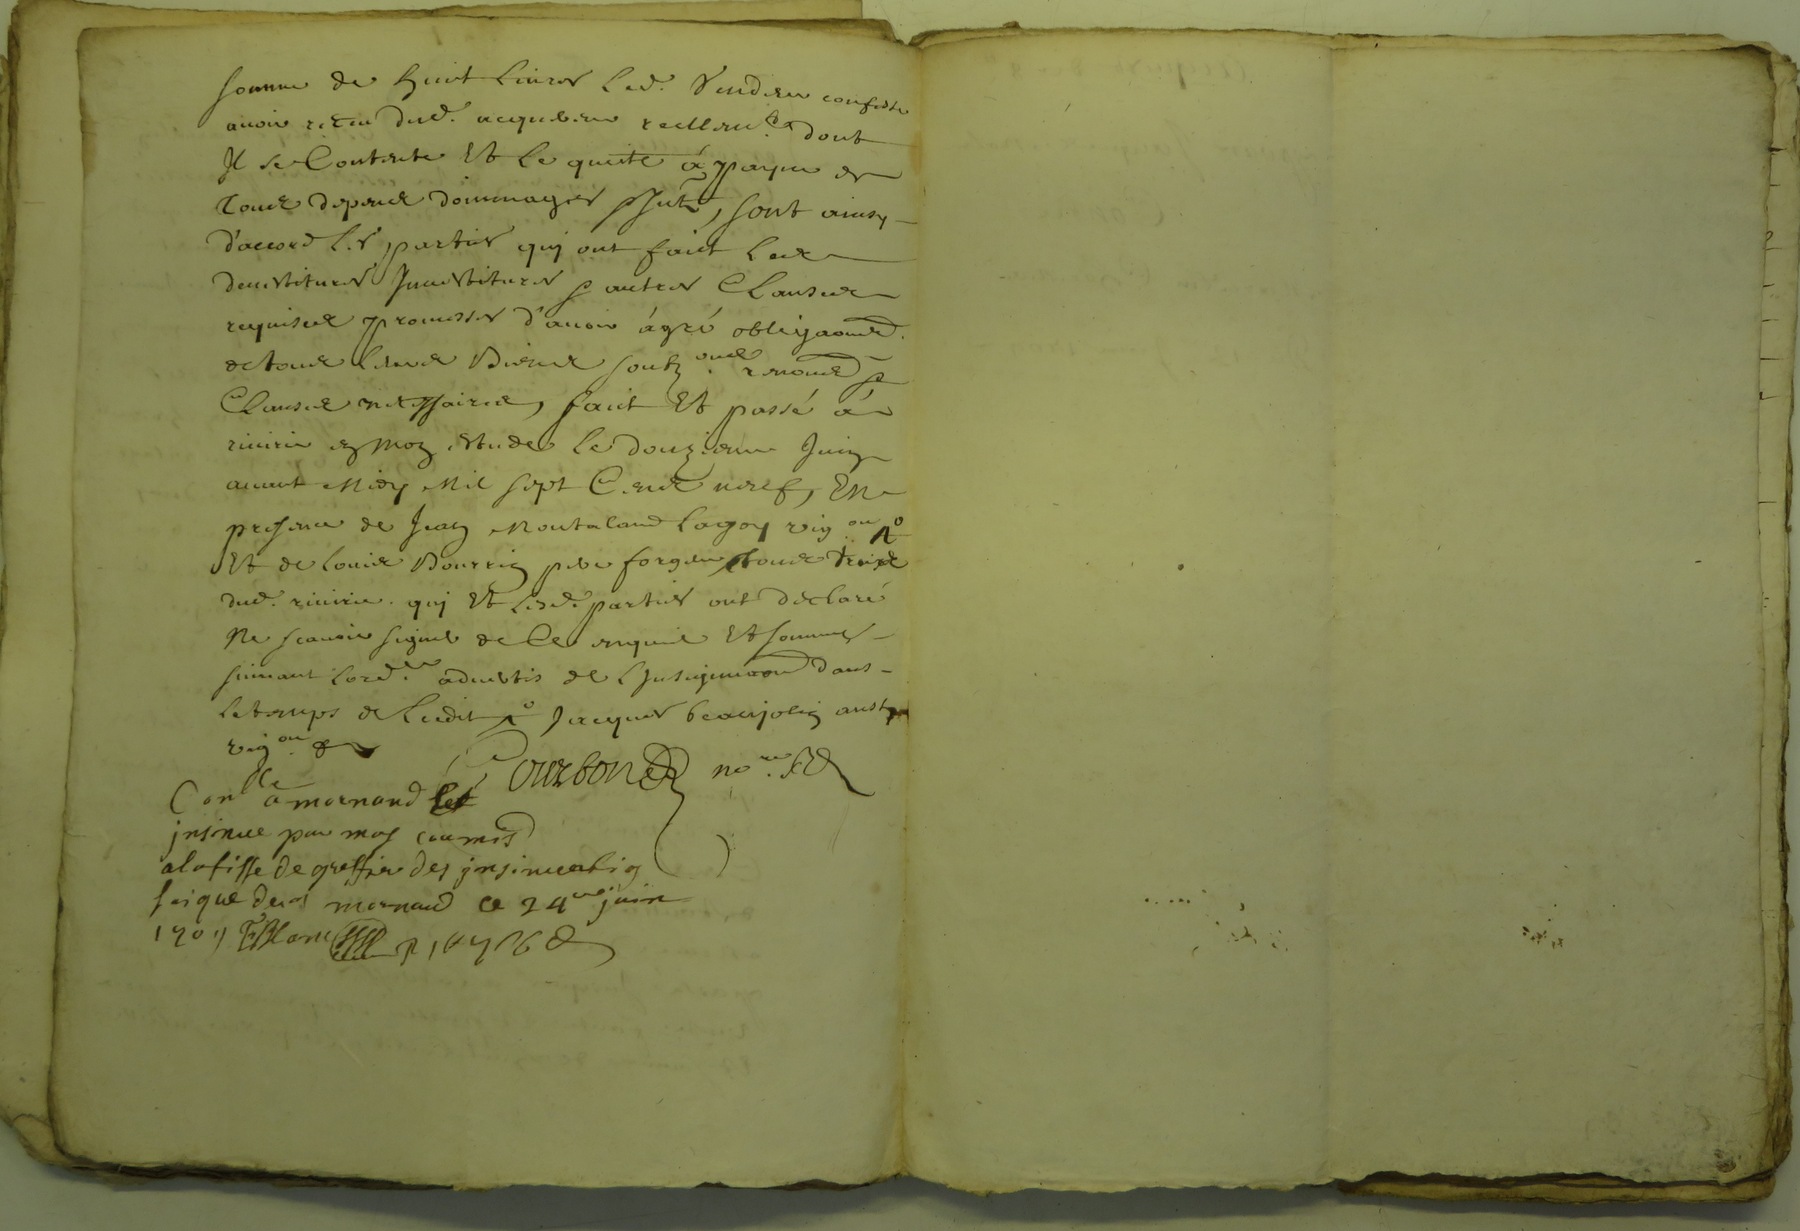 somme de huict livres led. vendeur confesse
avoir receu dud. acquereur reellem.t dont
Il se contente Et le quitte à payne de
tous depens dommages Jnts, sont ainsy
d'accord les parties quj ont faict les
devestitures Jnvestitures & autres Clauses
requises promesses d'avoir àgré obligaons
de tous leurs Biens soubz.ons renons &
Clauses necessaires, faict Et passé à
rivirie ez Moz estude le douzieme Juin
avant Midy Mil sept Cens neuf, En
presence de Jean Montaland Lagoy vig.on
Et de louis Bourrin père forgeur tous trois
dud. rivirie. quj Et lesd. parties ont declaré
Ne scavoir signer de ce enquis Et sommés
suivant lord.ce advertis de L Jnsignuaon dans
le temps de Ledit Jacques beaujolin aust
vig.on &
Courbon no.re R
Con.lle a mornand Et
jnsinue par moy commis
a lofisse de greffier des jnsinuation
laique dud mornand ce 24me juin
1709 Blanc